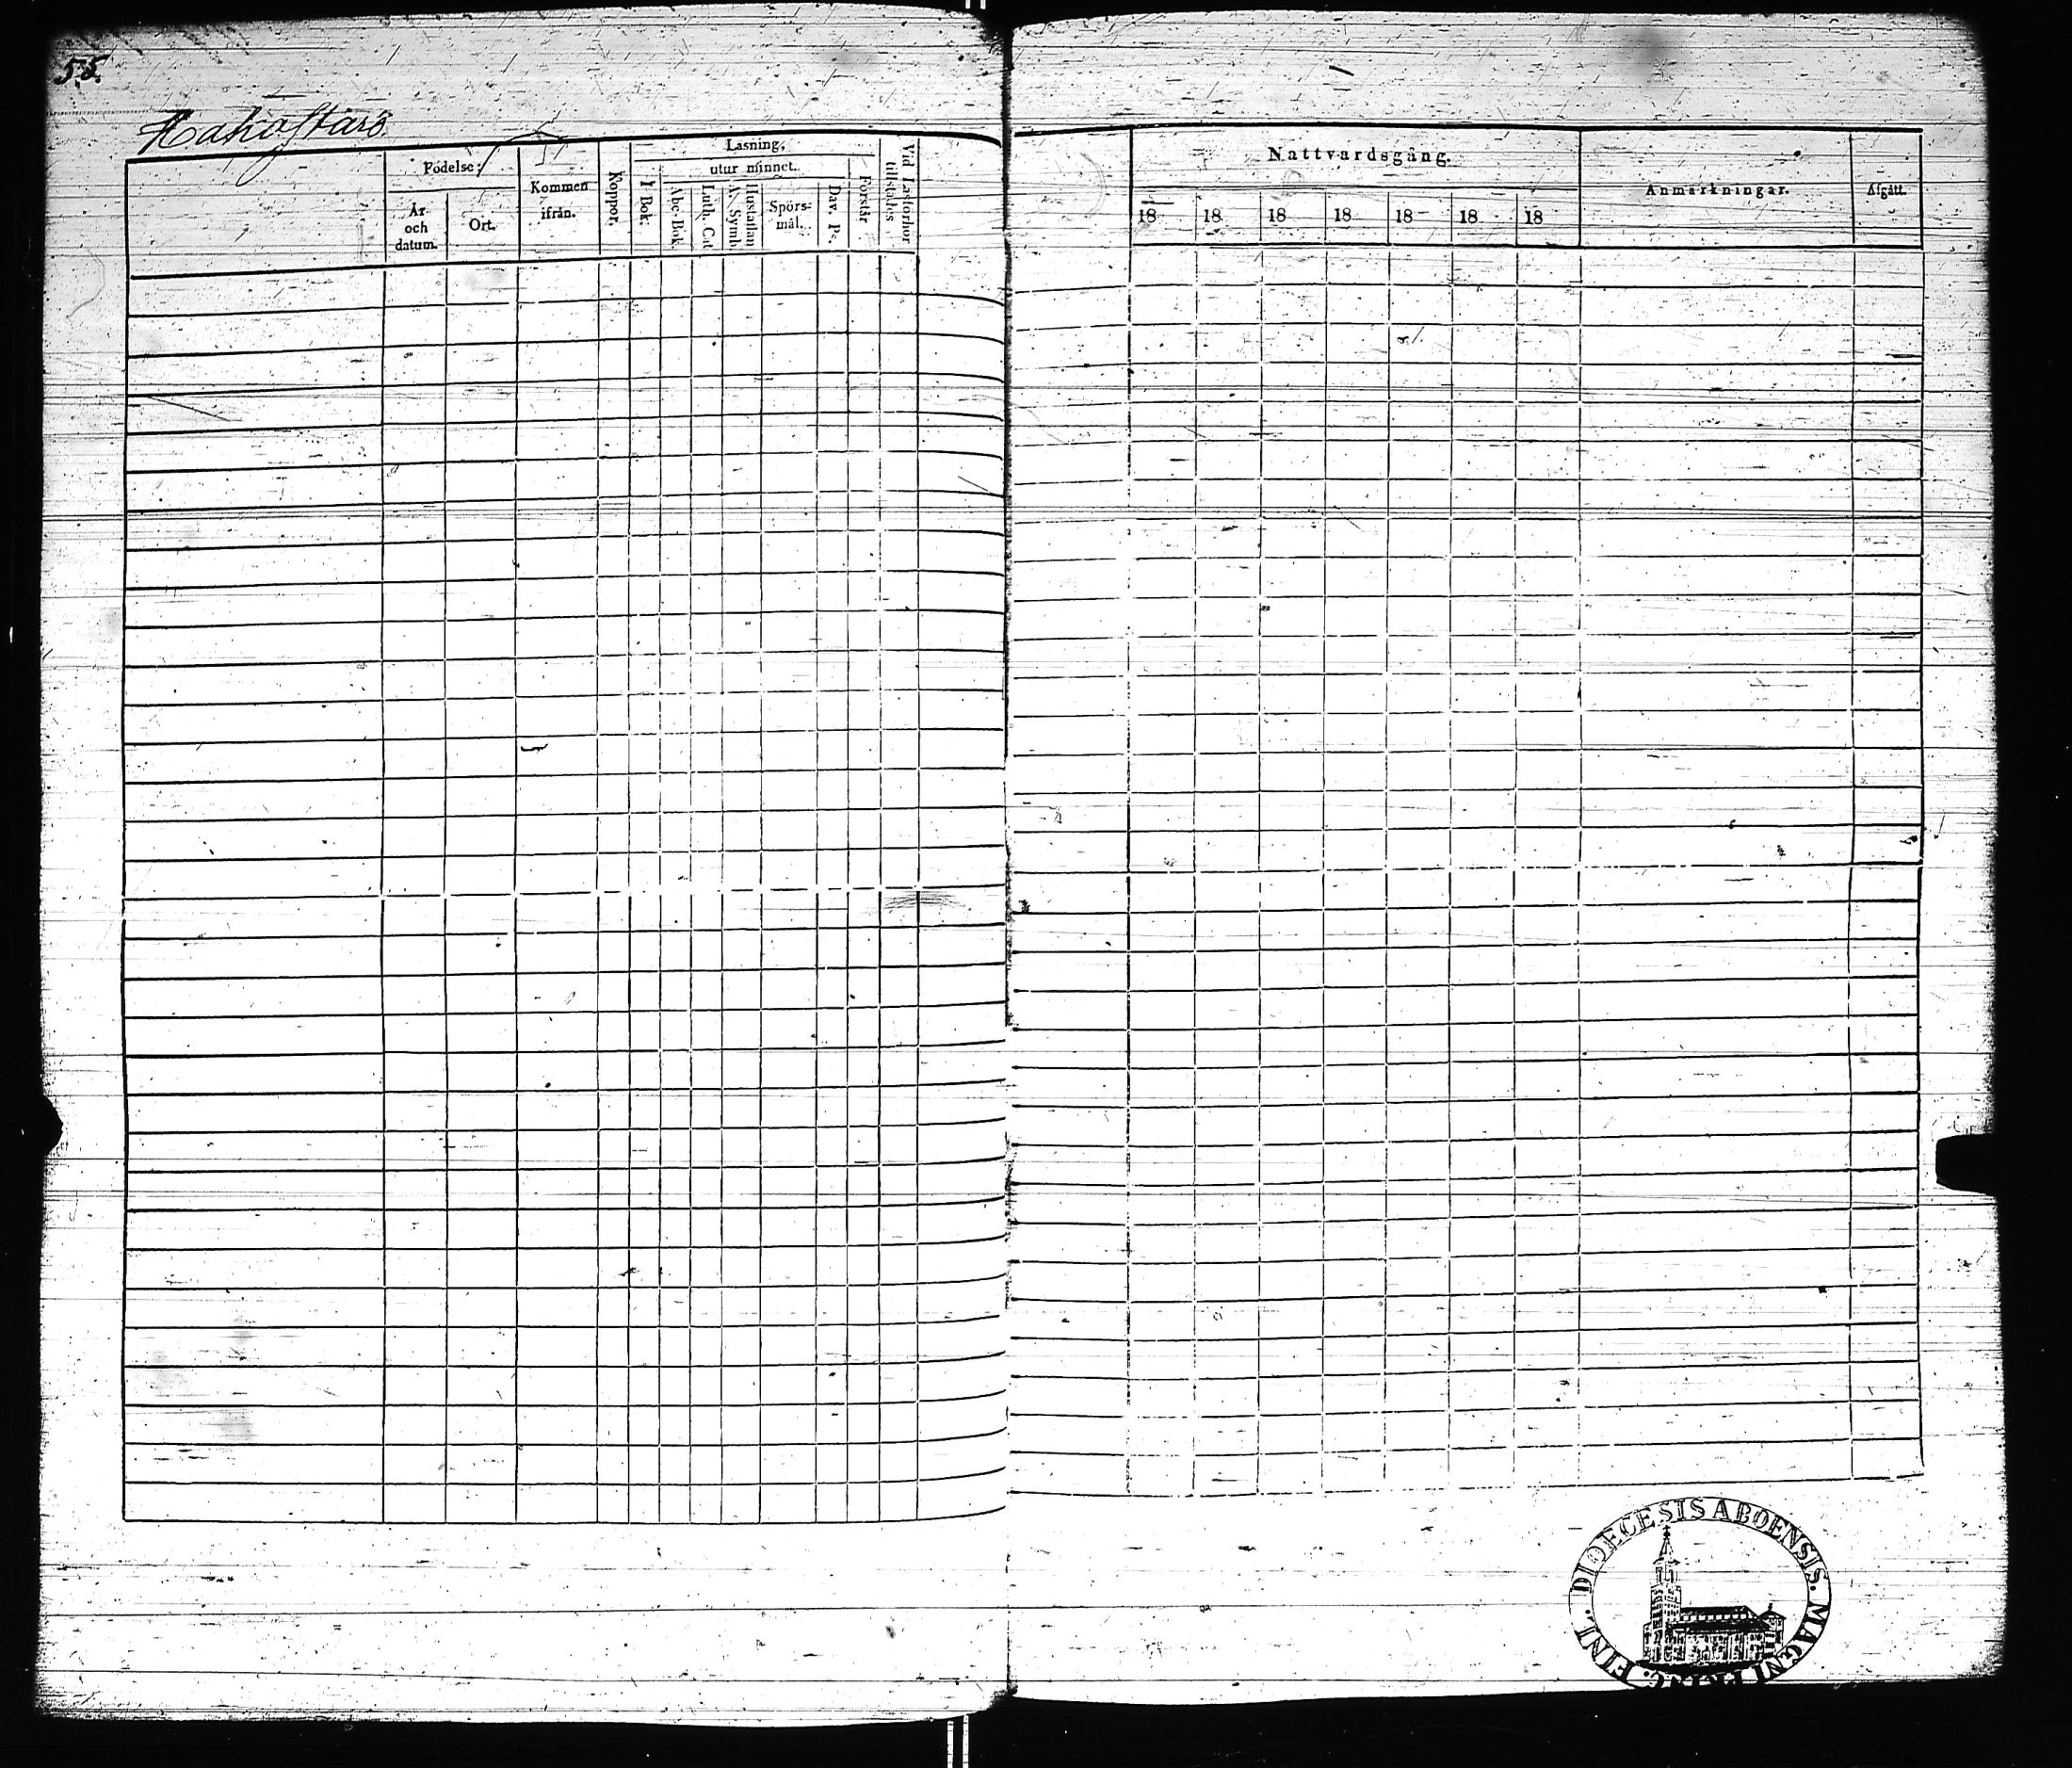 55.
Födelse;
År och datum.
Ort.
Kommen ifrån.
Koppor.
Läsning,
I Bok.
utur minnet.
Abc-Bok.
Luth. Cat
A. Symb.
Hustaflan
Spörs-mål.
Dav. Ps.
Förstår
Vid Läsförhör tillstädes
Nattvardsgång.
18 18 18 18 18 18 18
Anmärkningar.
Afgått.
DIOECESIS ABOENSIS. MAGNI PRINC. FINL.